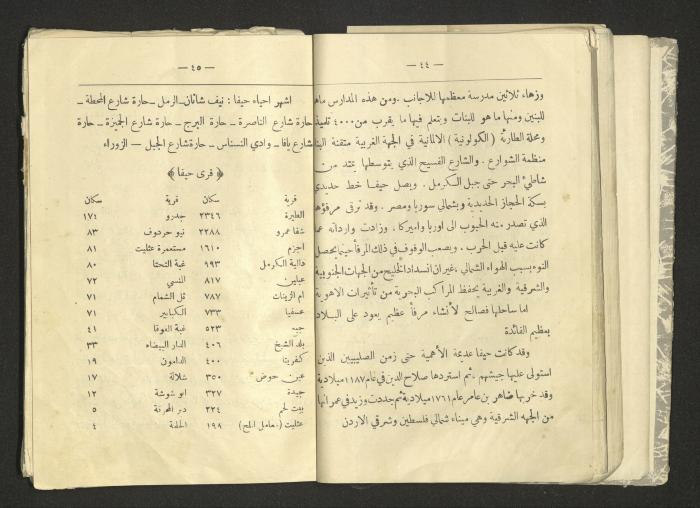 — ٤٤ —
وزهاء ثلاثين مدرسة معظمها للاجانب . ومن هذه المدارس ما هو
للبنين ومنها ما هو للبنات ويتعلم فيها ما يقرب من ٤٠٠٠ تلميذ
ومحلة الطارئة ( الكولونية ) الالمانية في الجهة الغربية متقنة البناء
منظمة الشوارع . والشارع الفسيح الذي يتوسطها يمتد من
شاطئ البحر حتى جبل الكرمل . ويصل حيفا خط حديدي
بسكة الحجاز الحديدية وبشمالي سوريا ومصر . وقد ترقى مرفؤها
الذي تصدر منه الحبوب الى اوربا واميركا ، وزادت وارداته عما
كانت عليه قبل الحرب . ويصعب الوقوف في ذلك المرفأ حينما يحصل
النوء بسبب الهواء الشمالي ، غير ان انسداد الخليج من الجهات الجنوبية
والشرقية والغربية يحفظ المراكب البحرية من تأثيرات الاهوية
اما ساحلها فصالح لأنشاء مرفأ عظيم يعود على البلاد
بعظيم الفائدة
وقد كانت حيفا عديمة الأهمية حتى زمن الصليبيين الذين
استولى عليها جيشهم ، ثم استردها صلاح الدين في عام ١١٨٧ ميلادية
وقد خربها ظاهر بن عامر عام ١٧٦١ ميلادية ثم جددت وزيد في عمرانها
من الجهه الشرقية وهي ميناء شمالي فلسطين وشرقي الاردن
— ٤٥ —
اشهر احياء حيفا : نيف شانان - الرمل - حارة شارع المحطة -
حارة شارع الناصرة - حارة البرج - حارة شارع الجميزة - حارة
شارع يافا - وادي النسناس - حارة شارع الجبل - الزوراء
﴿ قرى حيفا ﴾
قرية سكان قرية سكان
الطيرة ٢٣٤٦ جدرو ١٧٤
شفا عمرو ٢٢٨٨ نيو حردوف ٨٣
اجزم ١٦١٠ مستعمرة عثليت ٨١
دالية الكرمل ٩٩٣ غبة التحتا ٨٠
عبلين ٨١٧ النسي ٧٢
ام الزينات ٧٨٧ تل الشمام ٧١
عسفيا ٧٣٣ الكبابير ٧١
جبع ٥٢٣ غبة الفوقا ٤١
بلد الشيخ ٤٠٦ الدار البيضاء ٣٣
كفريتا ٤٠٠ الدامون ١٩
عين حوض ٣٥٠ شلالة ١٧
جيدة ٣٢٧ ابو شوشة ١٢
بيت لحم ٢٢٤ دير المحرقة ٥
عثليت ( معامل الملح ) ١٩٨ ٤